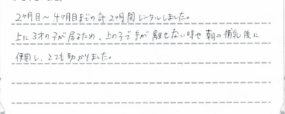 2ヶ月目〜4ヶ月目までの計2ヶ月間レンタルしました。
上に3才の子が居るため、上の子が離せない時や朝の授乳後に
使用し、とても助かりました。